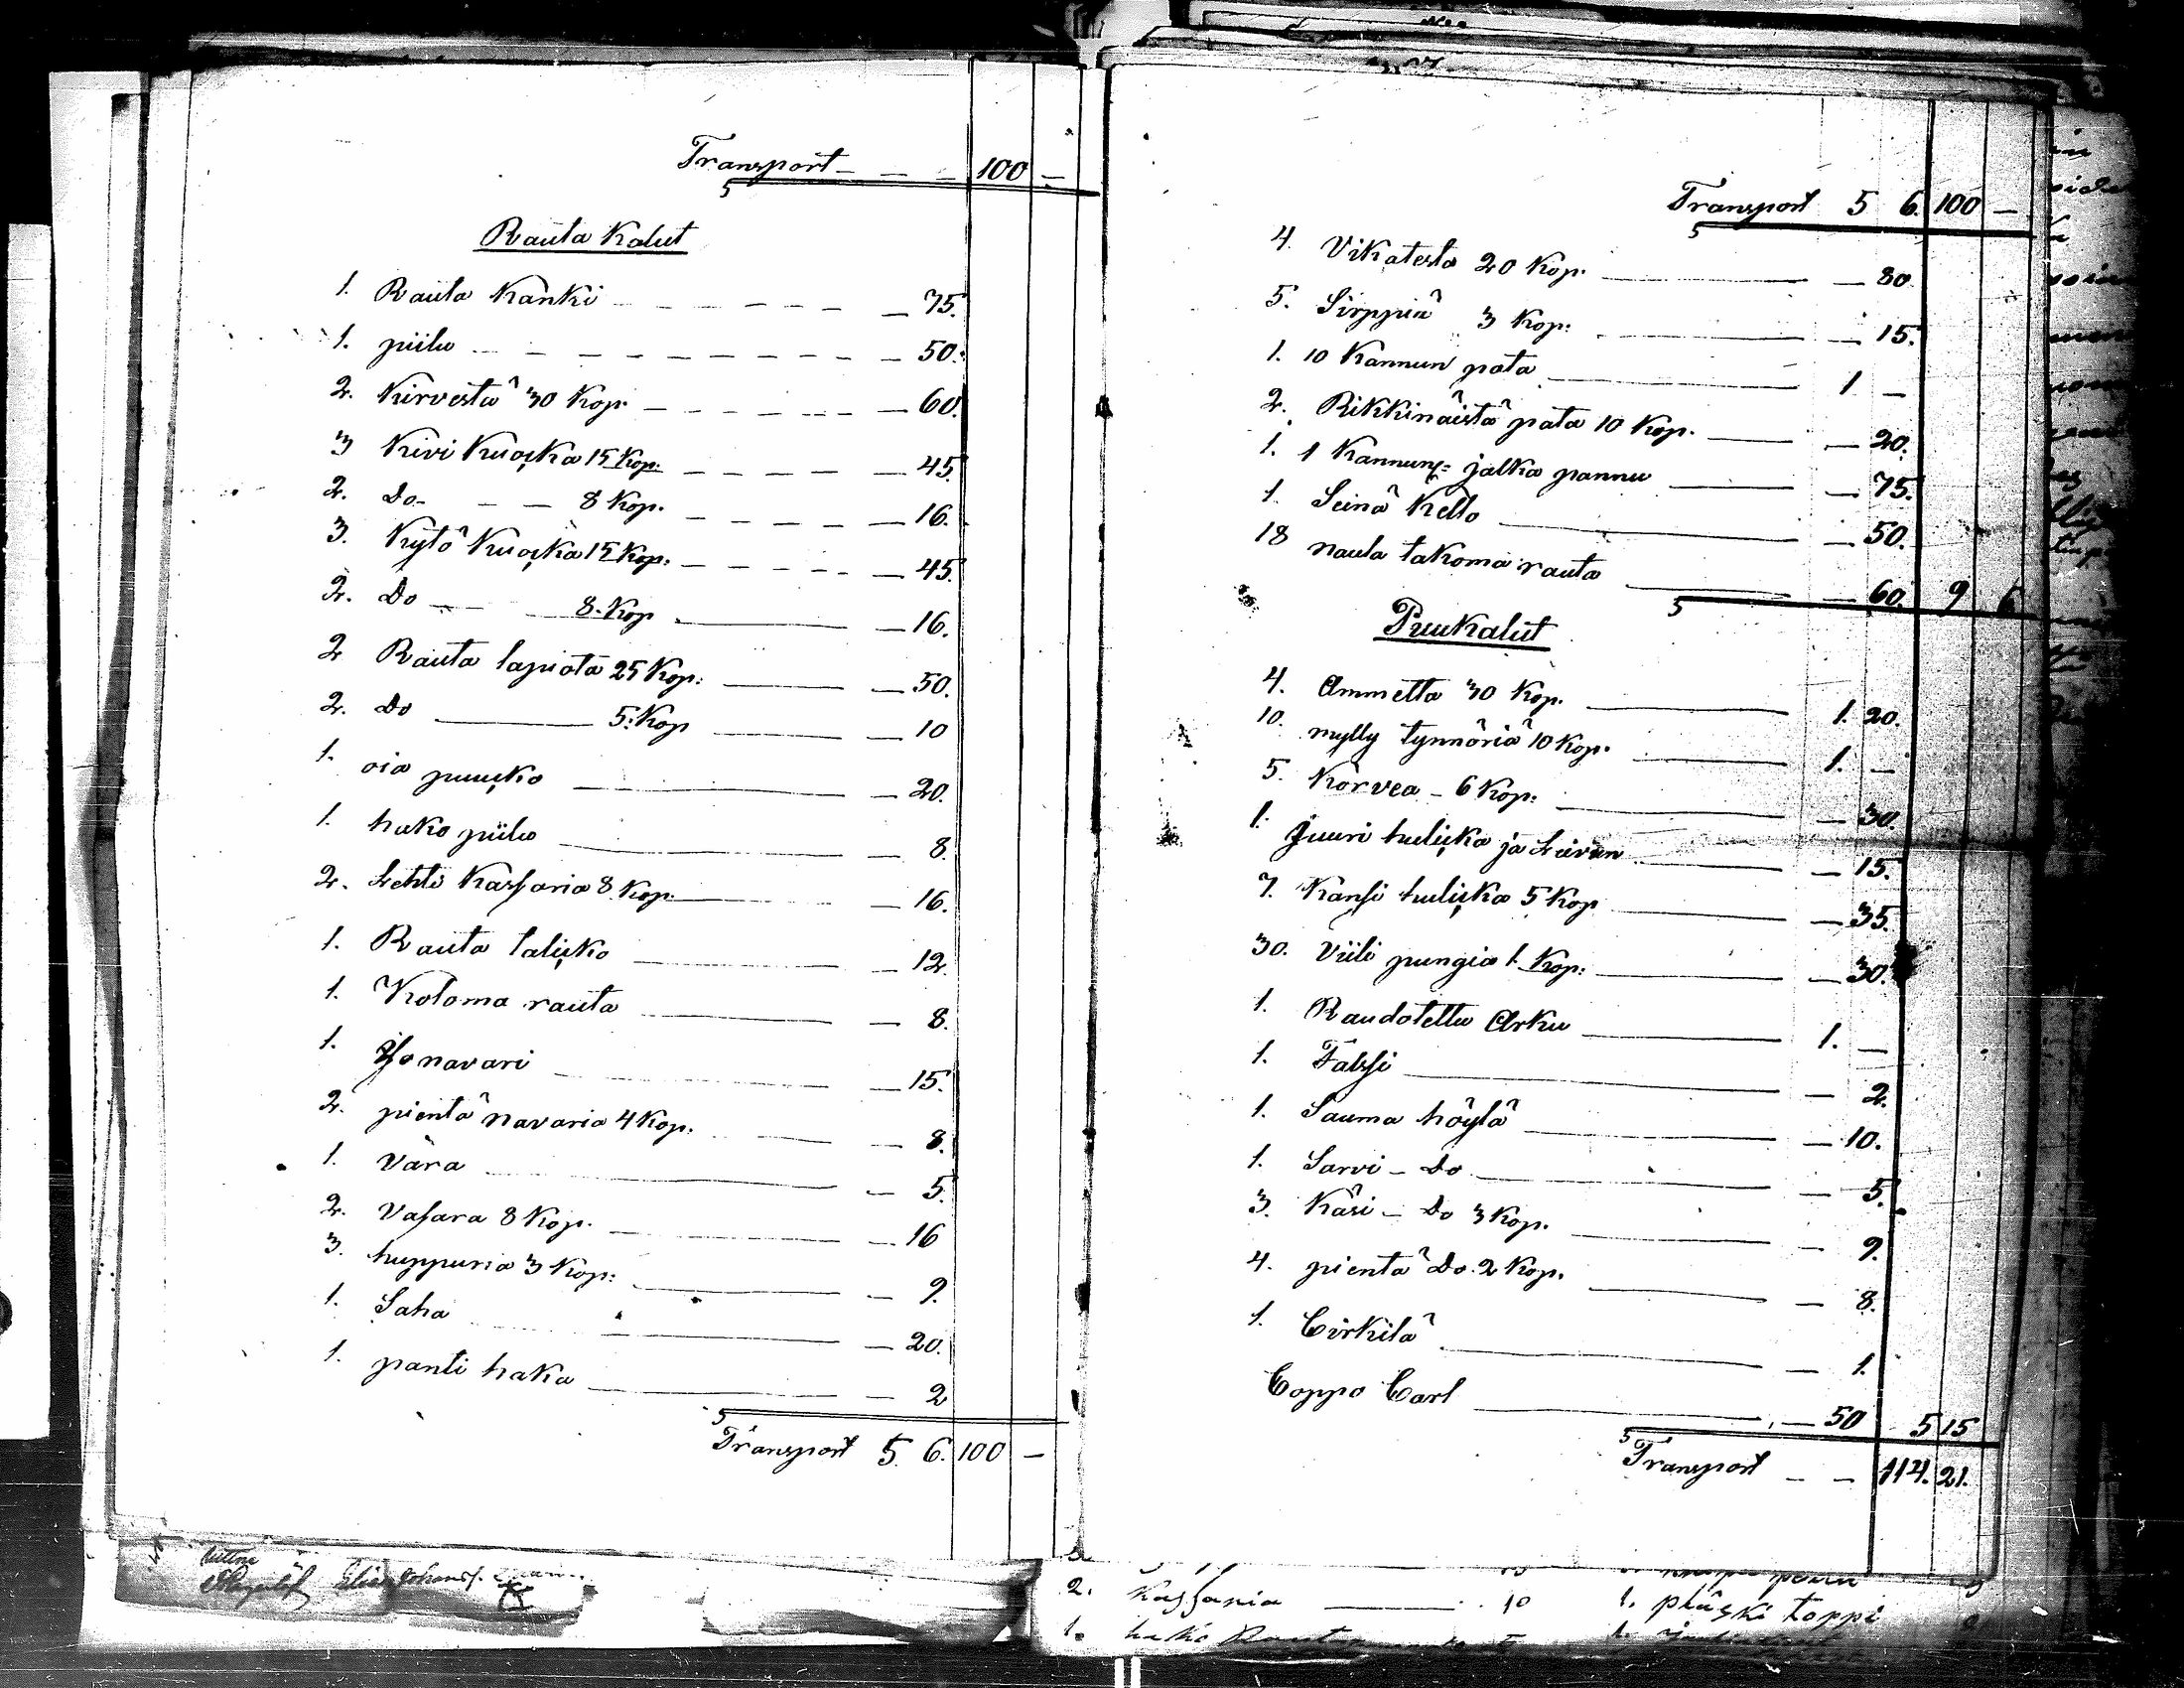 Transport - - - 100 -
Rauta Kalut
1. Rauta Kanki - - - - - 75.
1. piilu - - - - - - - - 50.
2. Kirvestä 30 Kop. - - - - - 60.
3 Kivi Kuoķka 15 Kop: - - - - 45.
2. Do - - 8 Kop. - - - - 16.
3. Kytö Kuoķka 15 Kop. - - - - 45.
2. Do - 8. Kop - 16.
2 Rauta lapiota 25 Kop: - 50.
2. Do - 5: Kop - 10
1. oia puuķko - 20.
1. hako piilu - 8.
2. Lehti Kassaria 8 Kop. - 16.
1. Rauta taliķko - 12.
1. Koloma rauta - 8.
1. Iso navari - 15.
2. pientä navaria 4 Kop. - 8.
1. Vära - 5.
2. Vasara 8 Kop. - 16
3. huppuria 3 Kop: - 9.
1. Saha - 20.
1. panti haka - 2
Transport 5. 6. 100 -
Transport 5 6. 100 -
4. Vikatesta 20 Kop. - 80
5. Sirppiä 3 Kop: - 15.
1. 10 Kannun pata - 1 -
2. Rikkinäistä pata 10 Kop. - 20.
1. 1 Kannun: jalka pannu - 75.
1. Seinä Kello - 50.
18 naula takoma rauta - 60. 9 6
Puukalut
4. Ammetta 30 Kop. - 1. 20.
10. mylly tynnöriä 10 Kop. - 1. -
5. Korvea - 6 Kop: - 30.
1. Juuri huliķka ja - 15.
7. Kansi huliķka 5 Kop - 35.
30. Viili pungia 1. Kop: - 30.
1. Raudotettu Arku - 1. -
1. Falssi - 2.
1. Sauma höylä - 10.
1. Sarvi - Do - 5.
3. Käsi - Do 3 Kop. - 9.
4. pientä Do. 2 Kop. - 8.
1. Cirkilä - 1.
Coppo Carl - 50 5 15
Transport - - 114. 21.
2. Kassaria - 10
1. pläski toppi
1. hako